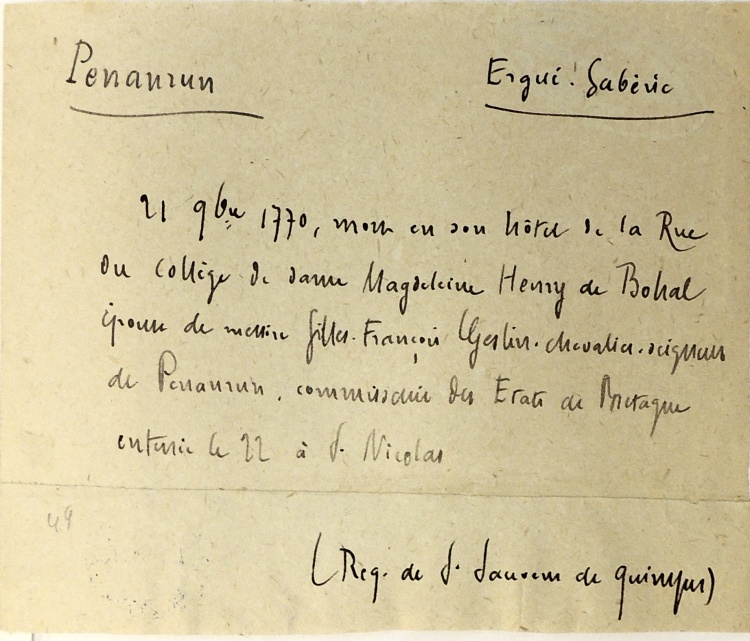 Penanrun Ergué-Gabéric
21 9bre 1770, mort en son hôtel de la Rue
du Collège de dame Magdeleine Henry de Bohal
épouse de messire Gilles-François Geslin-chevalier-seigneur
de Penanrun, commissaire des Etats de Bretagne
enterrée le 22 à St Nicolas
49
(Reg. de St Sauveur de Quimper)